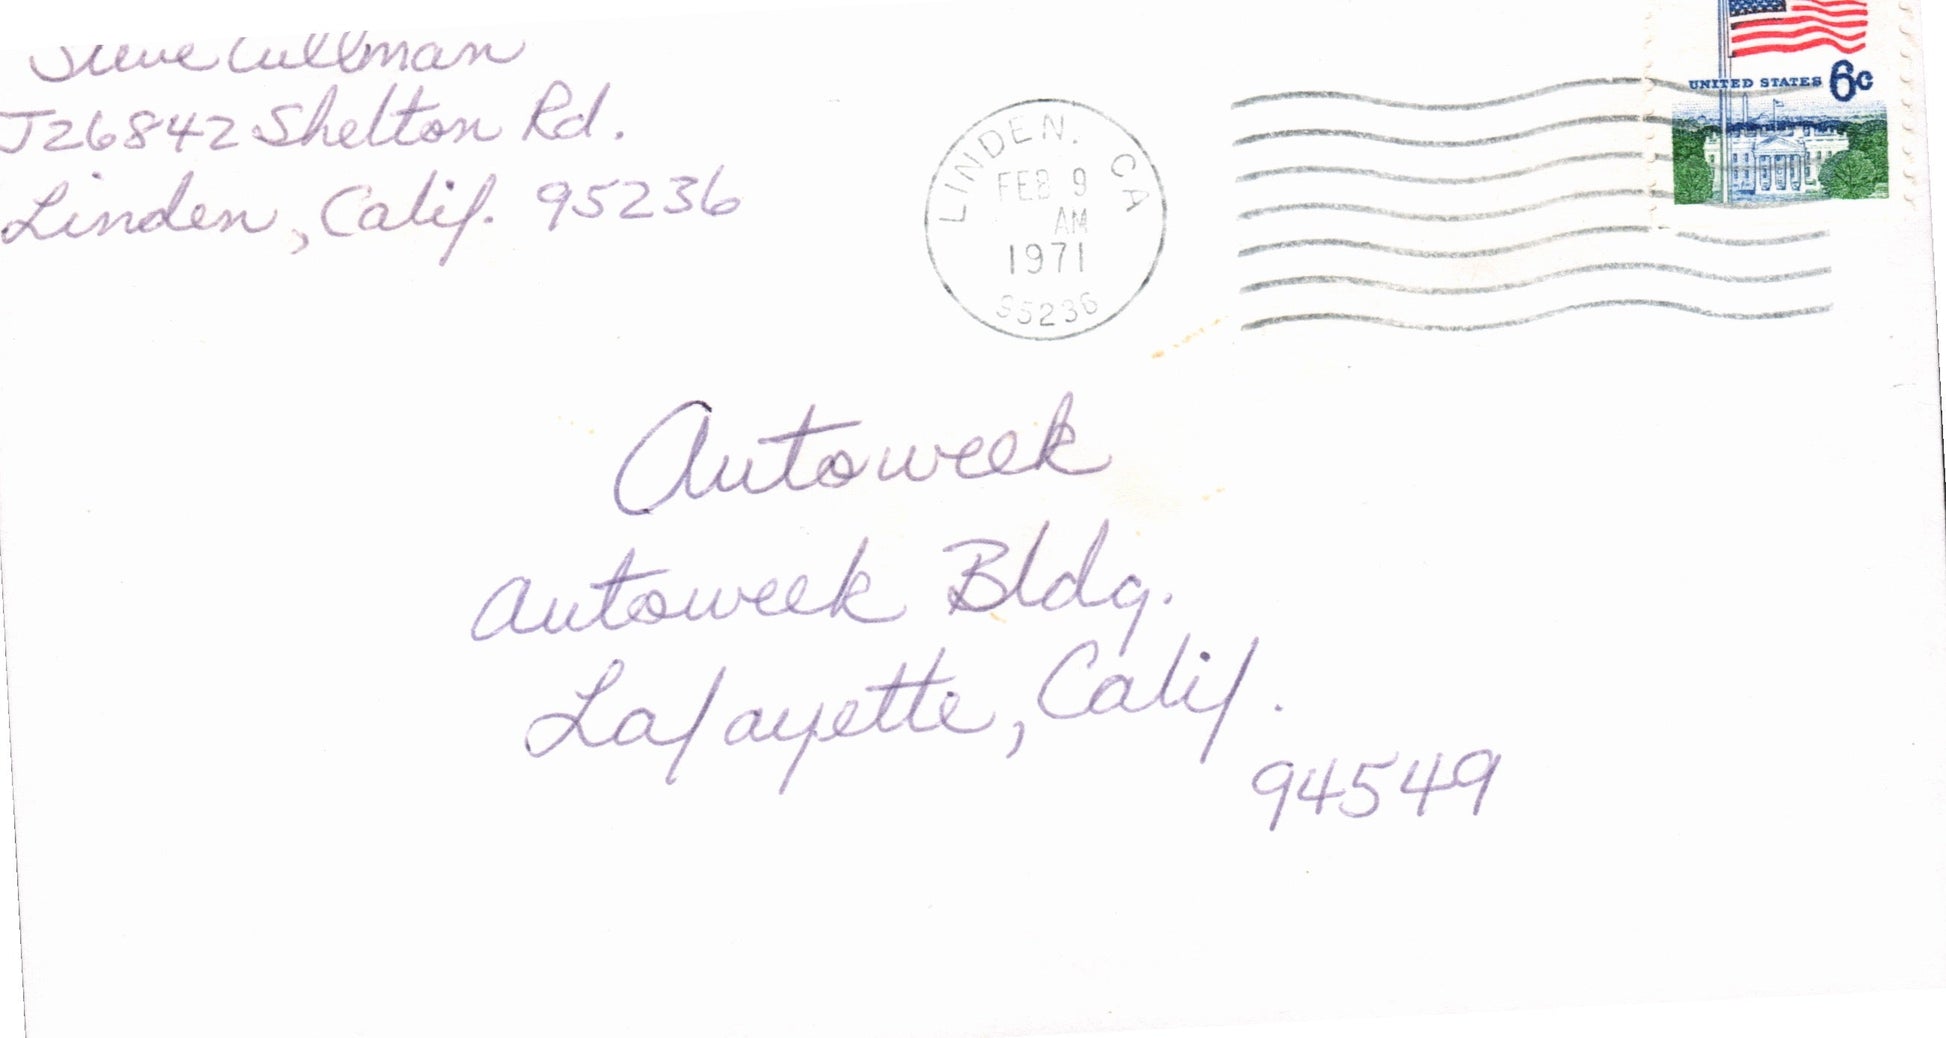 Steve Cullman
J26842 Shelton Rd.
Linden, Calif. 95236
LINDEN. CA
FEB 9
AM
1971
95236
UNITED STATES 6c
Autoweek
Autoweek Bldg.
Lafayette, Calif.
94549